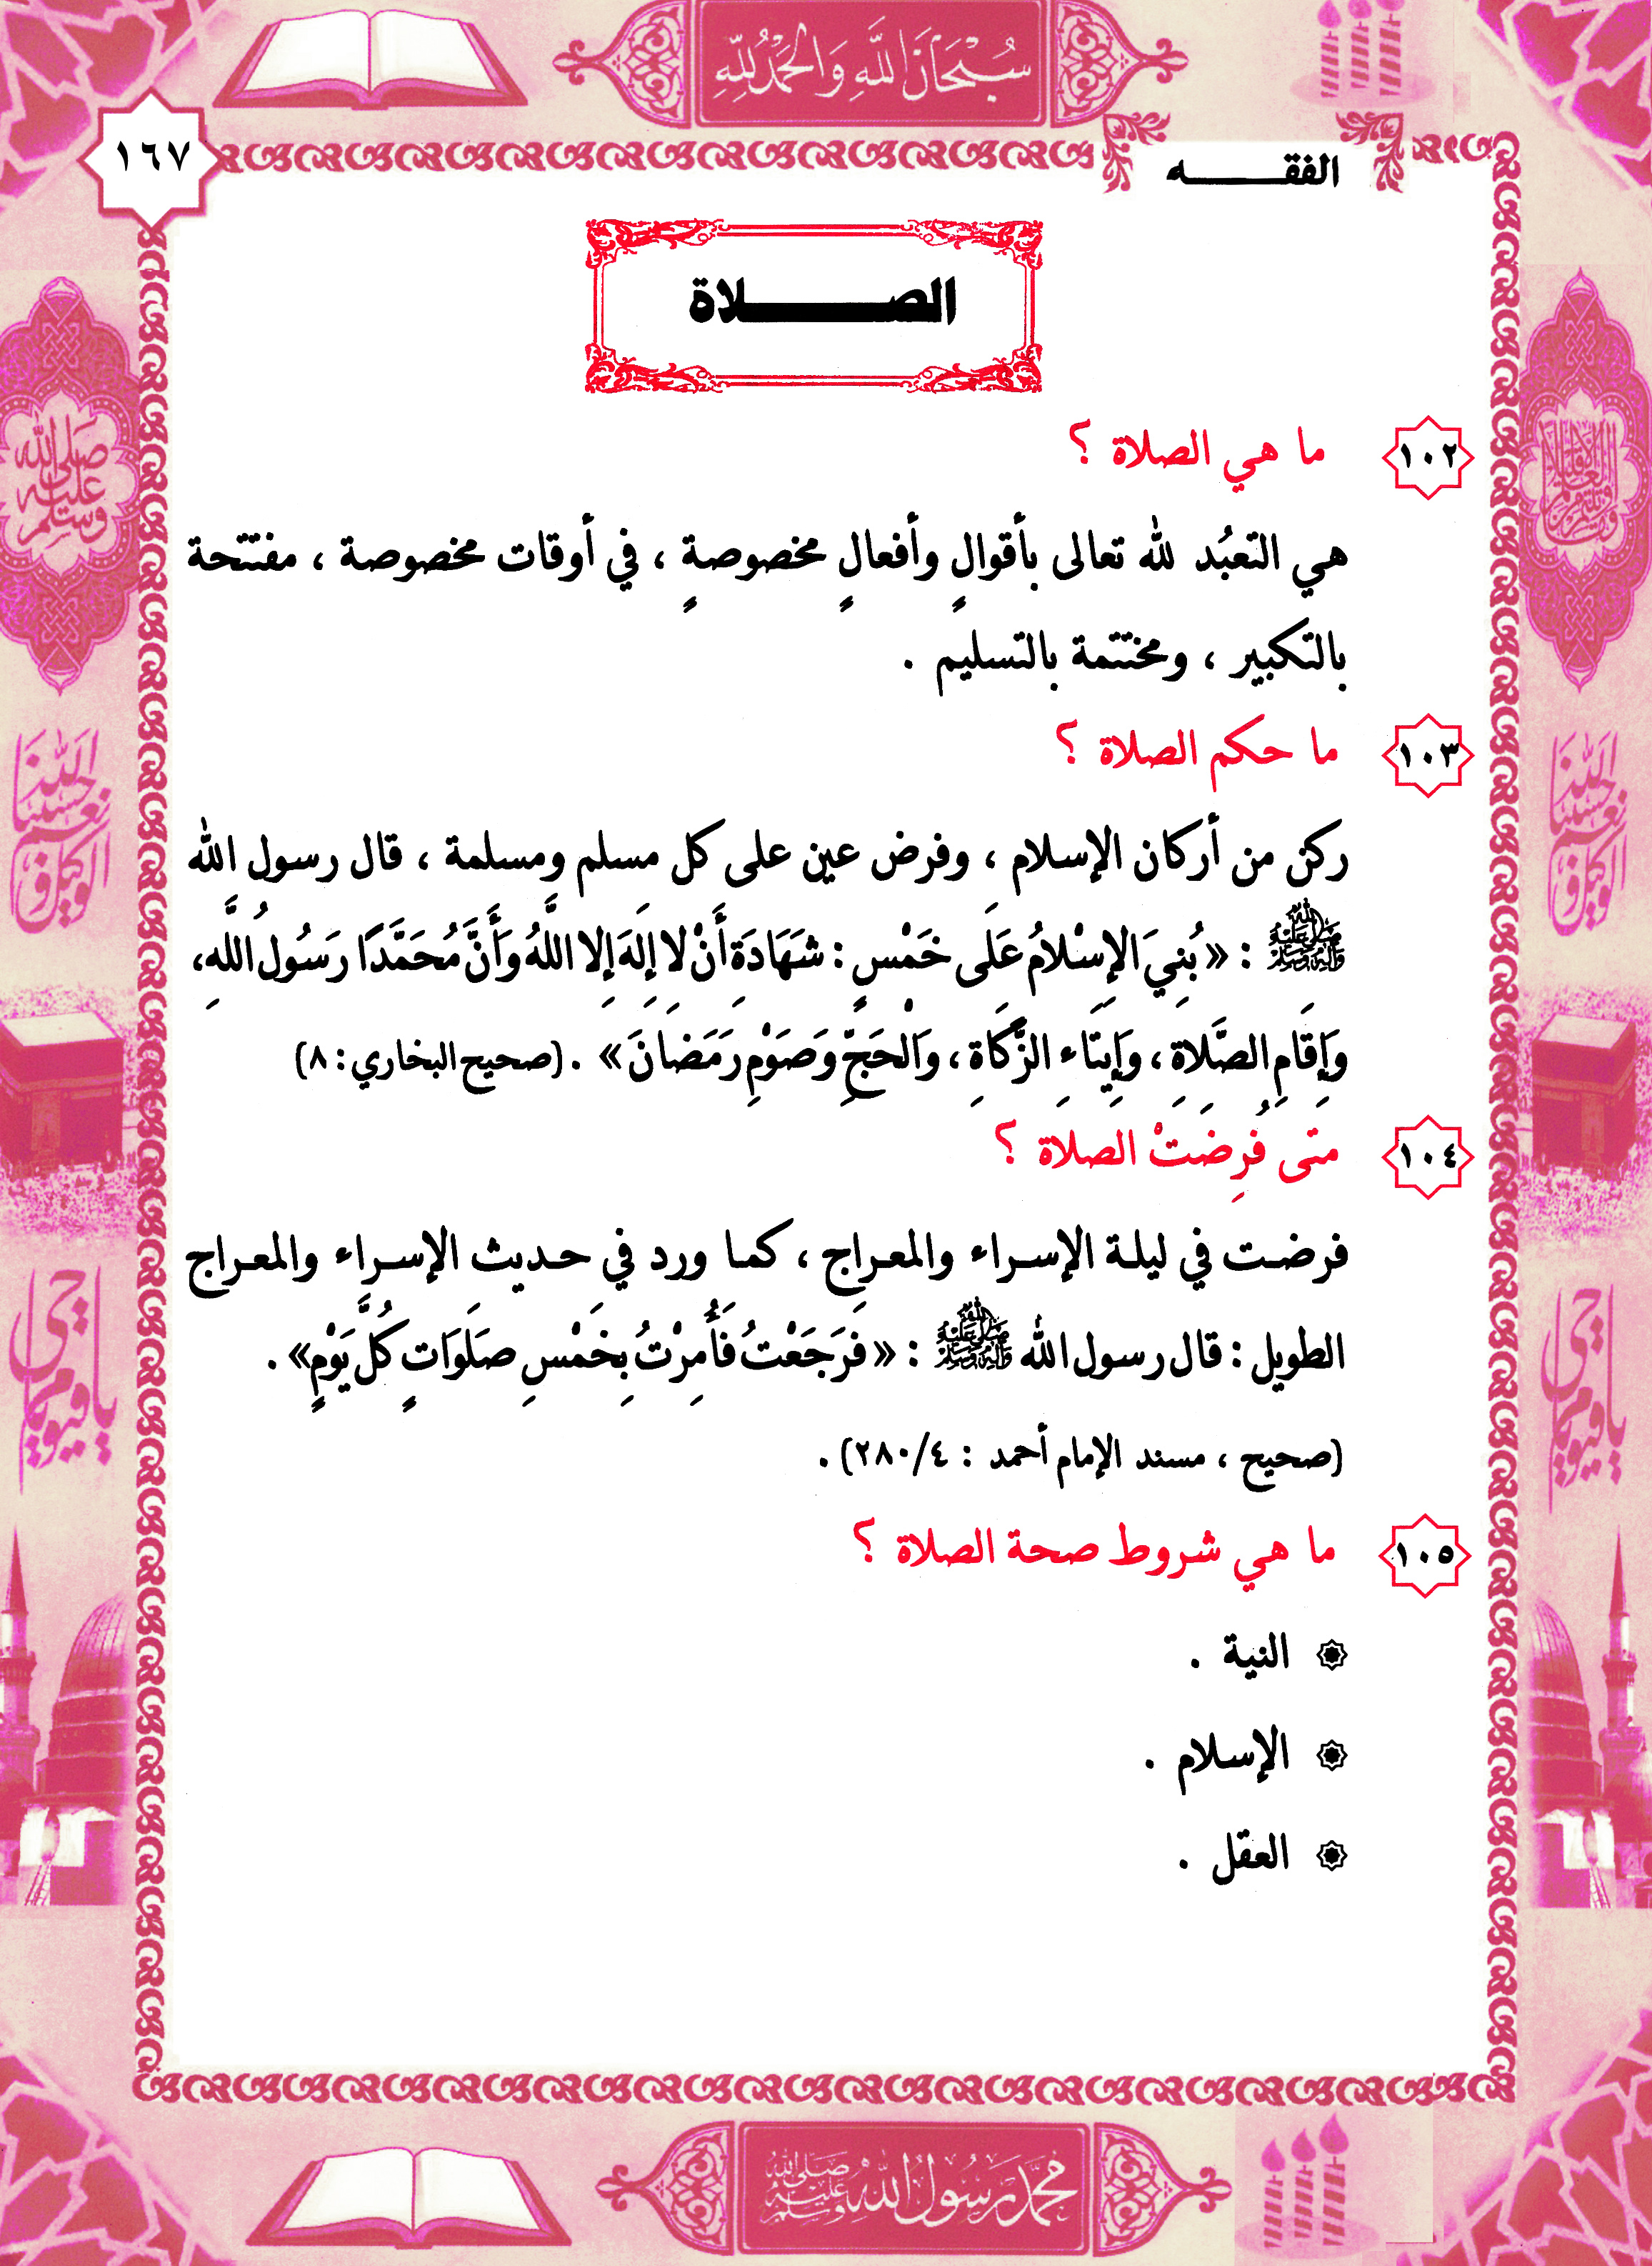 سُبْحَانَ اللَّهِ وَالْحَمْدُ لِلَّهِ
١٦٧
الفقــــــه
الصــــــلاة
١٠٢ ما هي الصلاة ؟
هي التعبُد لله تعالى بأقوالٍ وأفعالٍ مخصوصةٍ ، في أوقات مخصوصة ، مفتتحة
بالتكبير ، ومختتمة بالتسليم .
١٠٣ ما حكم الصلاة ؟
ركن من أركان الإسلام ، وفرض عين على كل مسلم ومسلمة ، قال رسول الله
ﷺ : « بُنِيَ الإِسْلامُ عَلَى خَمْسٍ : شَهَادَةِ أَنْ لا إِلَهَ إِلا اللَّهُ وَأَنَّ مُحَمَّدًا رَسُولُ اللَّهِ،
وَإِقَامِ الصَّلاةِ ، وَإِيتَاءِ الزَّكَاةِ ، وَالْحَجِّ وَصَوْمِ رَمَضَانَ » . (صحيح البخاري : ٨)
١٠٤ متى فُرِضَتْ الصلاة ؟
فرضـت في ليلـة الإسـراء والمعـراج ، كمـا ورد في حـديث الإسـراء والمعـراج
الطويل : قال رسول الله ﷺ : « فَرَجَعْتُ فَأُمِرْتُ بِخَمْسِ صَلَوَاتٍ كُلَّ يَوْمٍ» .
(صحيح ، مسند الإمام أحمد : ٢٨٠/٤) .
١٠٥ ما هي شروط صحة الصلاة ؟
النية .
الإسلام .
العقل .
صلى الله عليه وسلم
حسبنا الله ونعم الوكيل
حسبنا الله ونعم الوكيل
يا حي يا قيوم
يا حي يا قيوم
محمد رسول الله صلى الله عليه وسلم